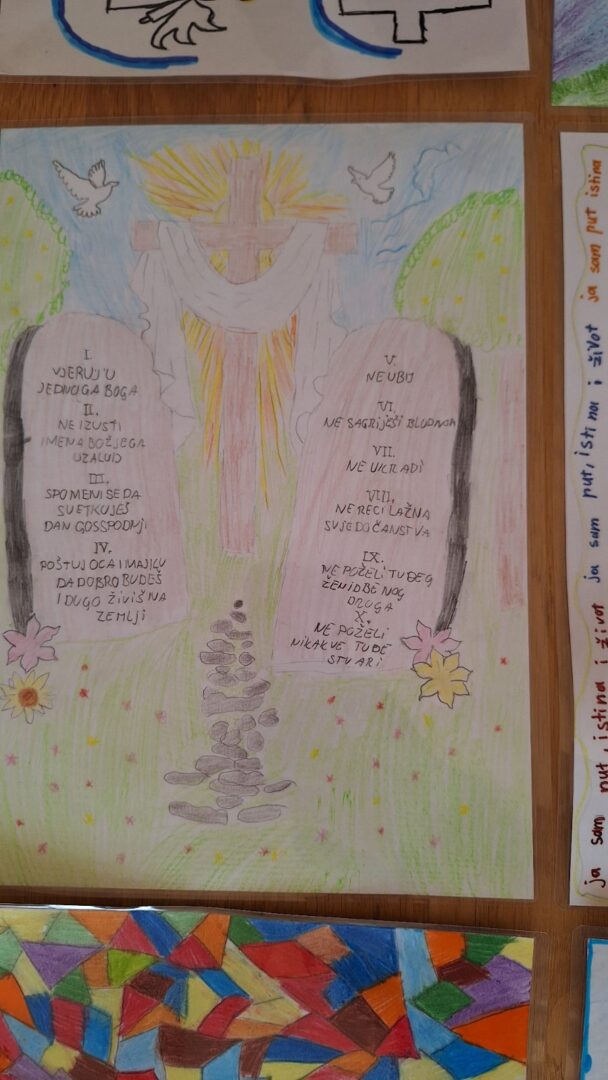 I.
VJERUJ U
JEDNOGA BOGA
II.
NE IZUSTI
IMENA BOŽJEGA
UZALUD
III.
SPOMENI SE DA
SVETKUJEŠ
DAN GOSSPODNJI
IV.
POŠTUJ OCA I MAJKU
DA DOBRO BUDEŠ
I DUGO ŽIVIŠ NA
ZEMLJI
V.
NE UBIJ
VI.
NE SAGRIJEŠI BLUDNOM
VII.
NE UKRADI
VIII.
NE RECI LAŽNA
SVJEDOČANSTVA
IX.
NE POŽELI TUĐEG
ŽENIDBENOG
DRUGA
X.
NE POŽELI
NIKAKVE TUĐE
STVARI
ja sam put, istina i život ja sam put, istina i život ja sam put istina